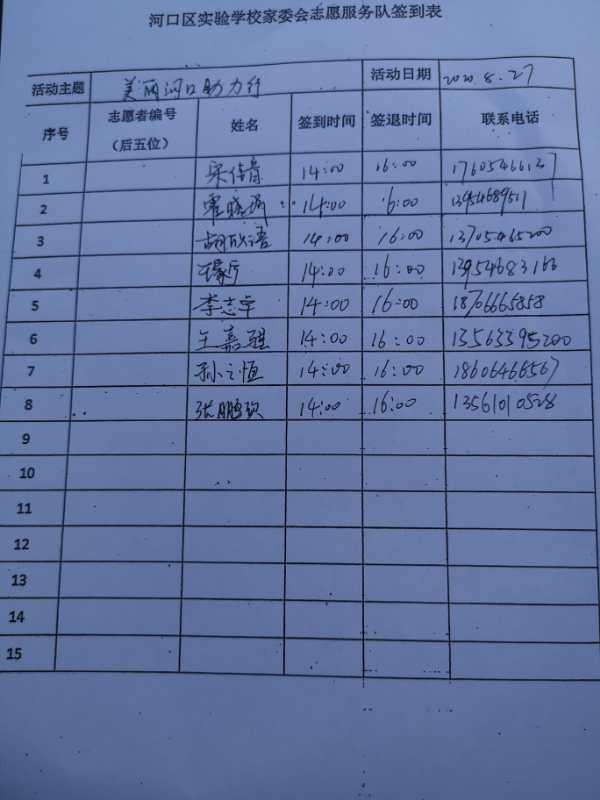 河口区实验学校家委会志愿服务队签到表
活动主题 美丽河口助力行 活动日期 2020.8.27
序号 志愿者编号（后五位） 姓名 签到时间 签退时间 联系电话
1 14:00 16:00 17605466127
2 14:00 16:00 13954689511
3 14:00 16:00 13705465200
4 14:00 16:00 13954683166
5 李志宇 14:00 16:00 18706665858
6 王嘉骐 14:00 16:00 13563395200
7 孙之恒 14:00 16:00 18606466567
8 张鹏钦 14:00 16:00 13561010528
9
10
11
12
13
14
15